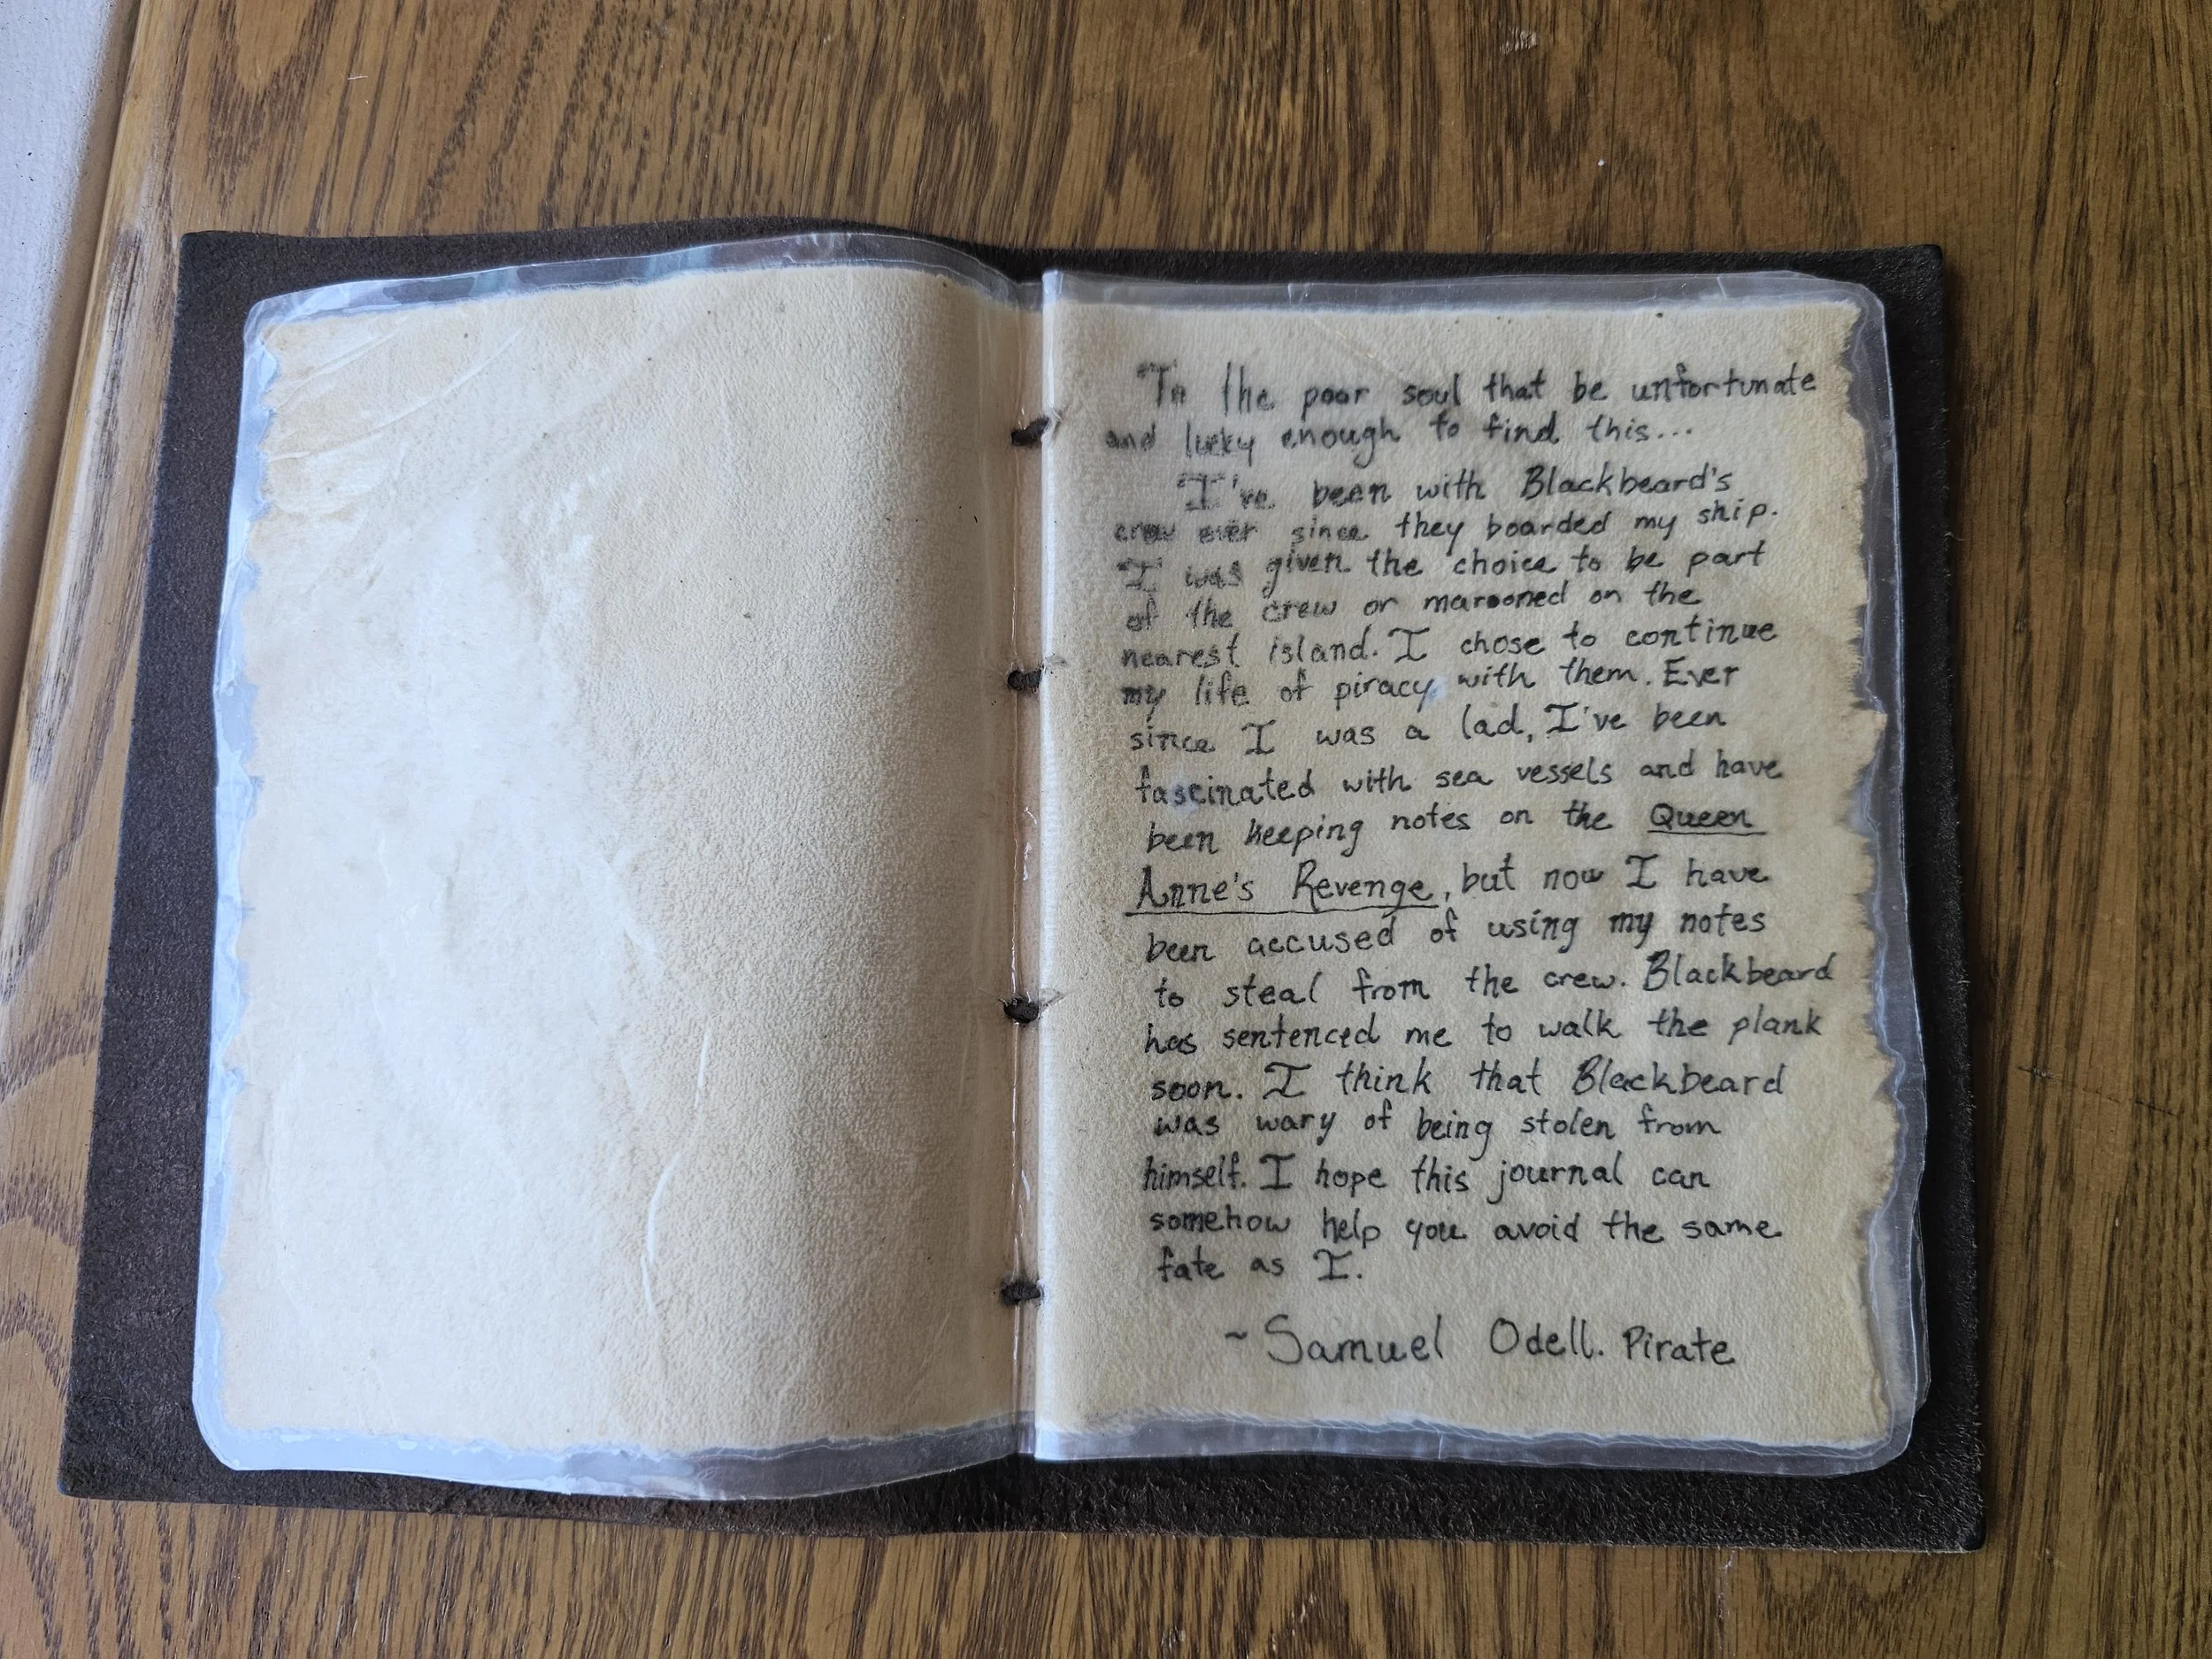 To the poor soul that be unfortunate
and lucky enough to find this...
I've been with Blackbeard's
crew ever since they boarded my ship.
I was given the choice to be part
of the crew or marooned on the
nearest island. I chose to continue
my life of piracy with them. Ever
since I was a lad, I've been
fascinated with sea vessels and have
been keeping notes on the Queen
Anne's Revenge, but now I have
been accused of using my notes
to steal from the crew. Blackbeard
has sentenced me to walk the plank
soon. I think that Blackbeard
was wary of being stolen from
himself. I hope this journal can
somehow help you avoid the same
fate as I.
~Samuel Odell. Pirate